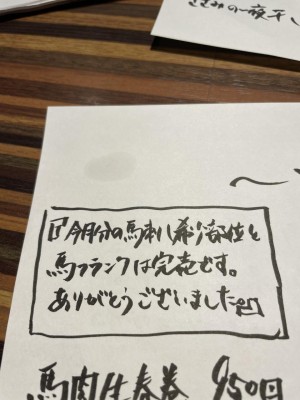 ささみの一夜干し
〜
『今月分の馬刺し希少部位と
馬フランクは完売です。
ありがとうございました』
馬肉生春巻 950円